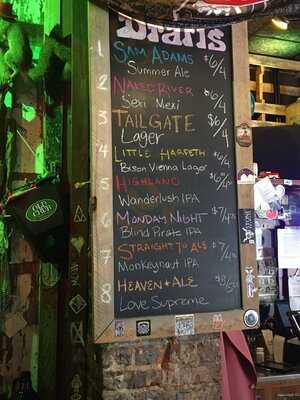 Drafts
1 Sam Adams $6/4
Summer Ale
2 Naked River $6/4
Sexi Mexi
3 Tailgate $6/4
Lager
4 Little Harpeth $6/4
Bison Vienna Lager
5 Highland $6/4
Wanderlush IPA
6 Monday Night $7/4
Blind Pirate IPA
7 Straight To Ale $7/4
Monkeynaut IPA
8 Heaven + Ale
Love Supreme